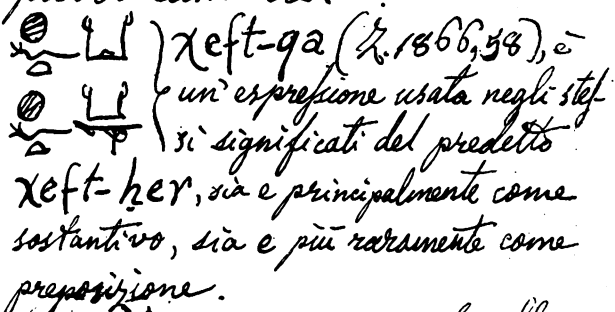 𓐍𓆑𓏏𓂓 } χeft-qa (Z. 1866, 58), è
un'espreſsione usata negli steſ-
si significati del predetto
χeft-ḥer, sia e principalmente come
sostantivo, sia e più raramente come
preposizione.